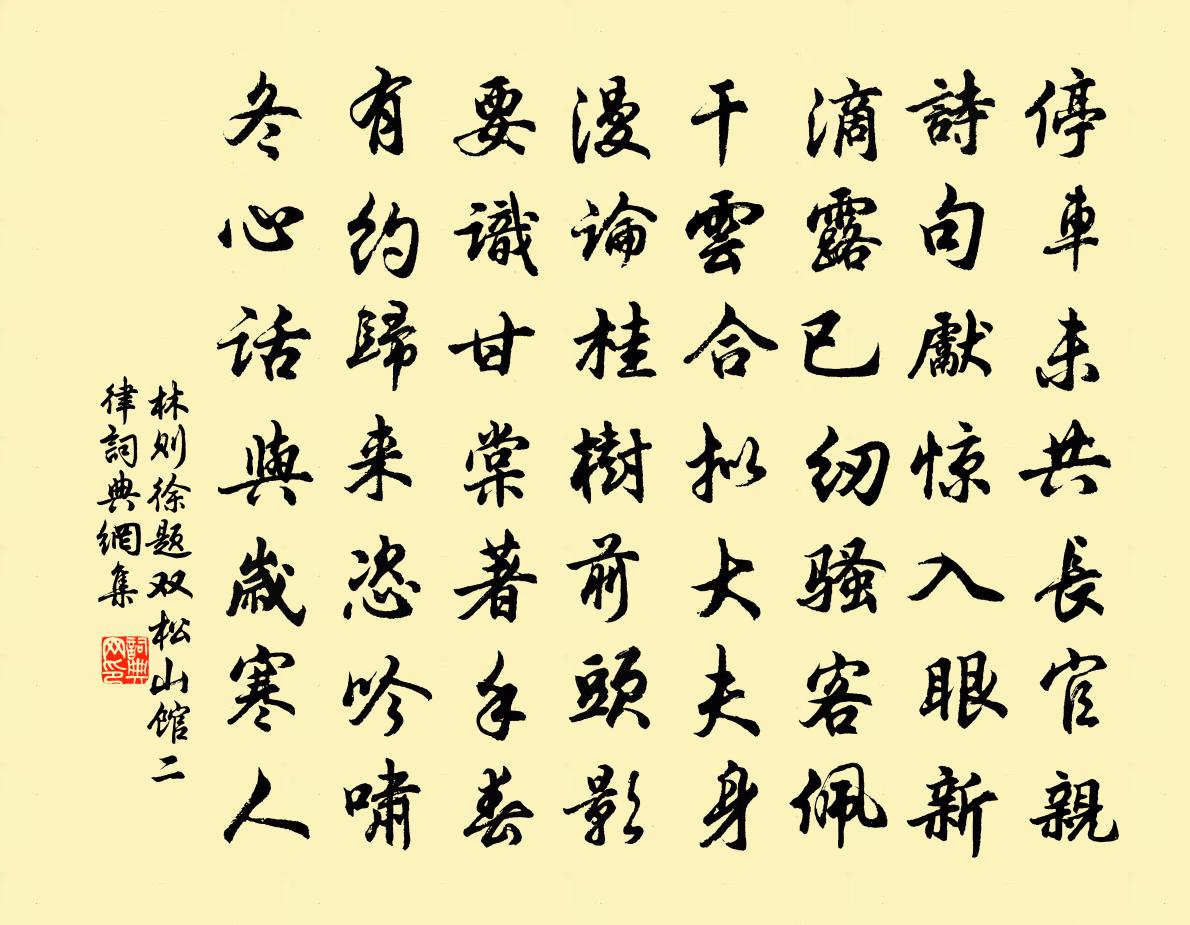 停車未共長官親
詩句獻惊入眼新
滴露已纫騷客佩
干雲合拟大夫身
漫論桂樹前頭影
要識甘棠著手春
有約歸来恣吟嘯
冬心話與歲寒人
林则徐题双松山馆二
律詞典網集
詞典网印